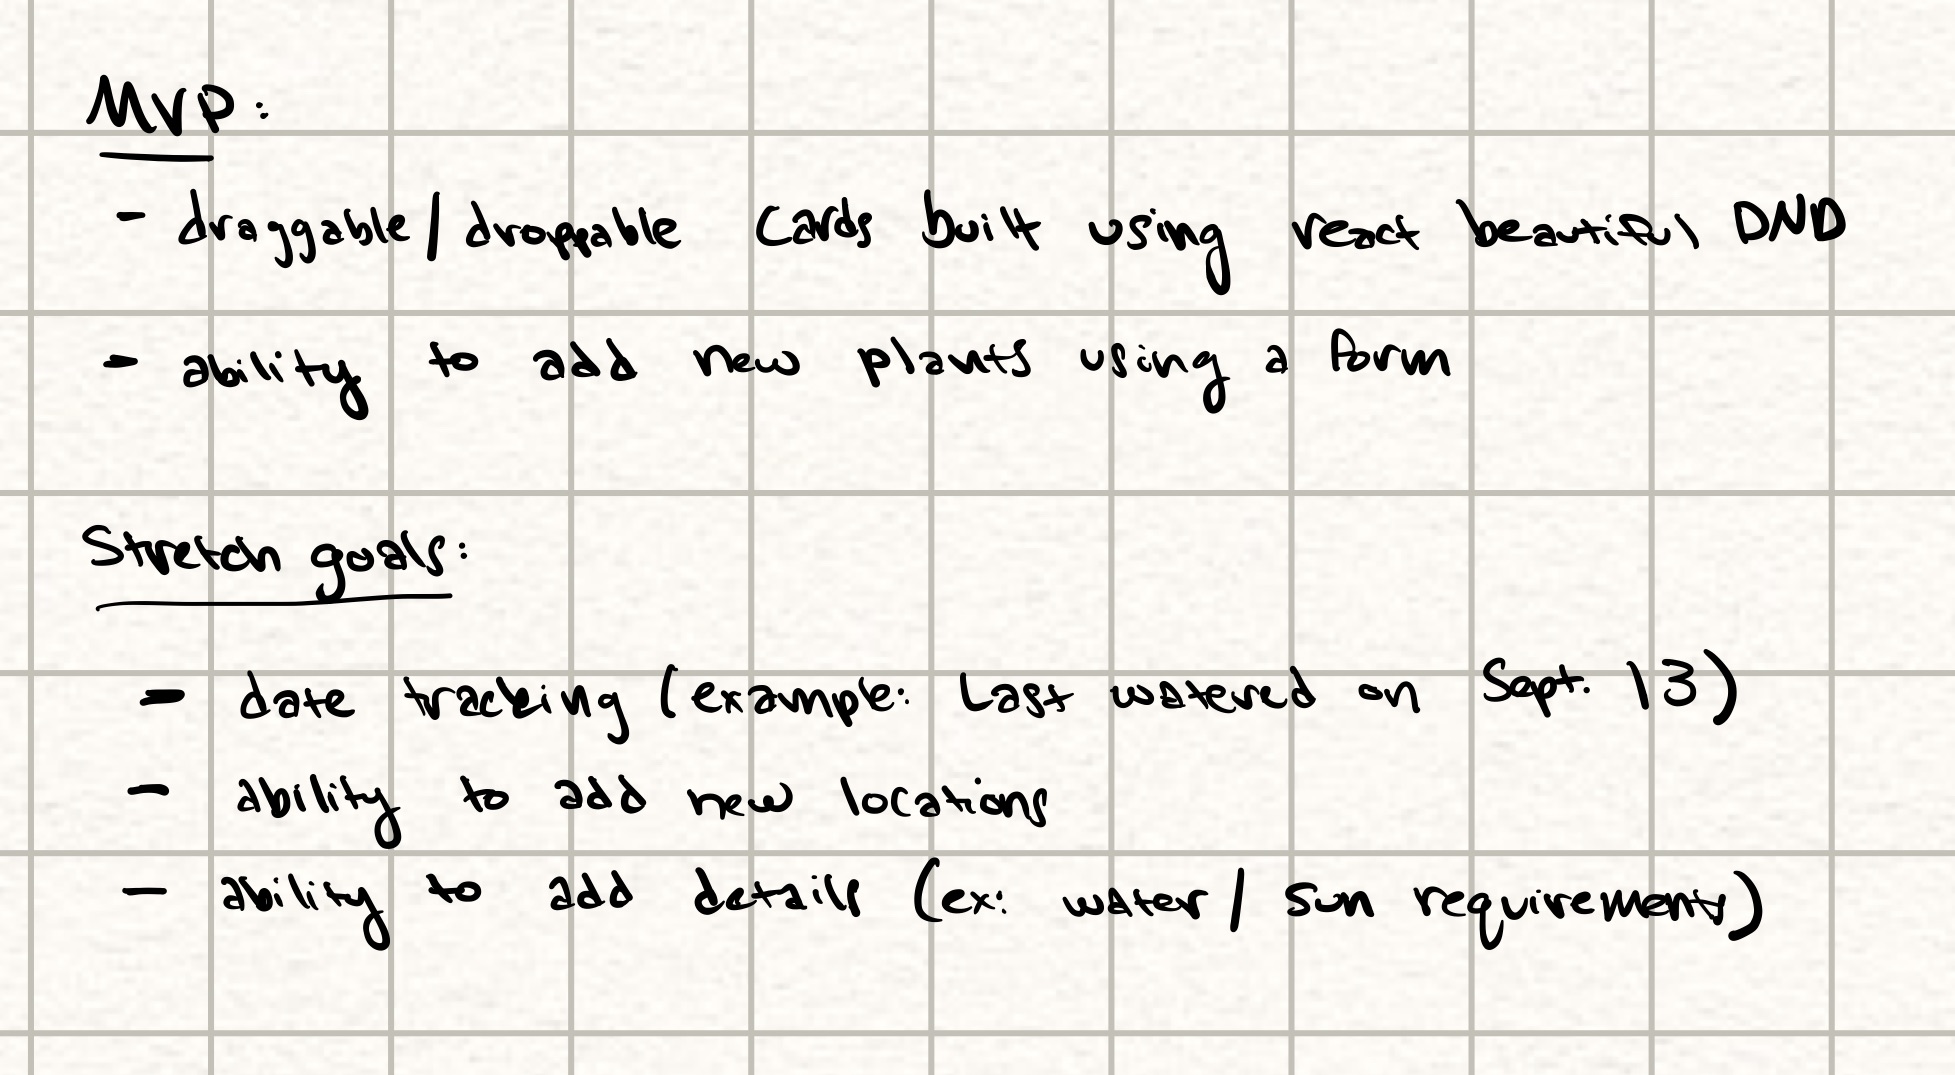 MVP:
- draggable/droppable cards built using react beautiful DND
- ability to add new plants using a form
Stretch goals:
- date tracking (example: Last watered on Sept. 13)
- ability to add new locations
- ability to add details (ex: water/ sun requirements)